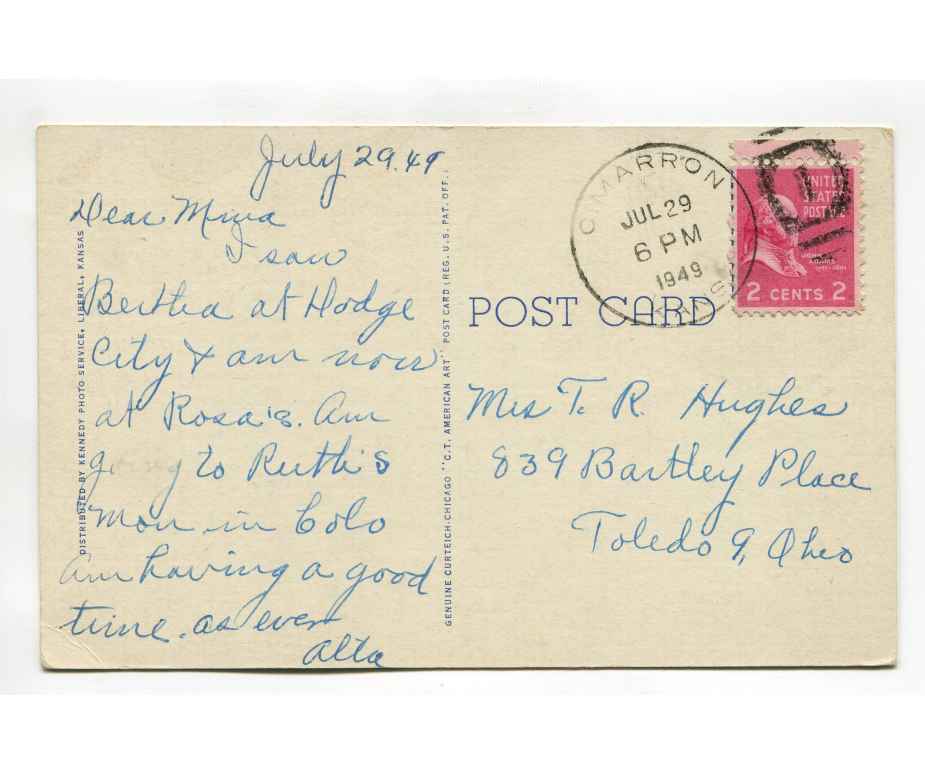 July 29.49
Dear Mina
I saw
Bertha at Hodge
City & am now
at Rosa's. Am
going to Ruth's
Mon in Colo
Am having a good
time. as ever
Alta
DISTRIBUTED BY KENNEDY PHOTO SERVICE, LIBERAL, KANSAS
GENUINE CURTEICH-CHICAGO "C.T. AMERICAN ART" POST CARD (REG. U.S. PAT. OFF.)
POST CARD
CIMARRON
JUL 29
6 PM
1949
UNITED
STATES
POSTAGE
JOHN
ADAMS
2 CENTS 2
Mrs T. R. Hughes
839 Bartley Place
Toledo 9, Ohio